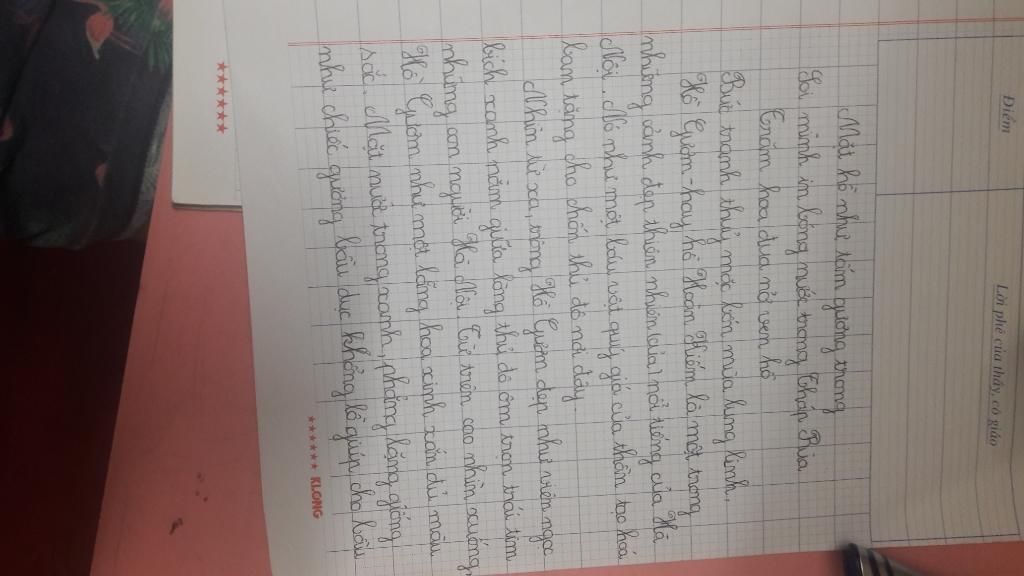 Điểm
Lời phê của thầy, cô giáo
Mặt hồ như tấm gương trong
Soi mình in bóng nước trong Tháp Rùa
Trăm hoa đua nở ven hồ
Bức tranh thuỷ mặc bốn mùa lung linh.
Hồ Gươm - hay hồ Hoàn Kiếm là một trong
những cảnh đẹp thiên nhiên (của) nổi tiếng của Hà
Nội. Nó như một báu vật quý giá của thiên tạo hoá
ban tặng cho chốn thủ đô nơi đây.
Nhìn từ xa, trông Hồ Gươm đẹp như viên ngọc
bích xanh nằm giữa lòng thủ đô ôm trọn trái tim
những con người Hà Nội. Từ trên cao nhìn xuống,
Hồ Gươm như một lẵng hoa xinh xắn đủ màu
sắc. Mặt nước trong xanh, phẳng lặng giống
như chiếc gương bầu dục khổng lồ giúp cho bầu
KLONG